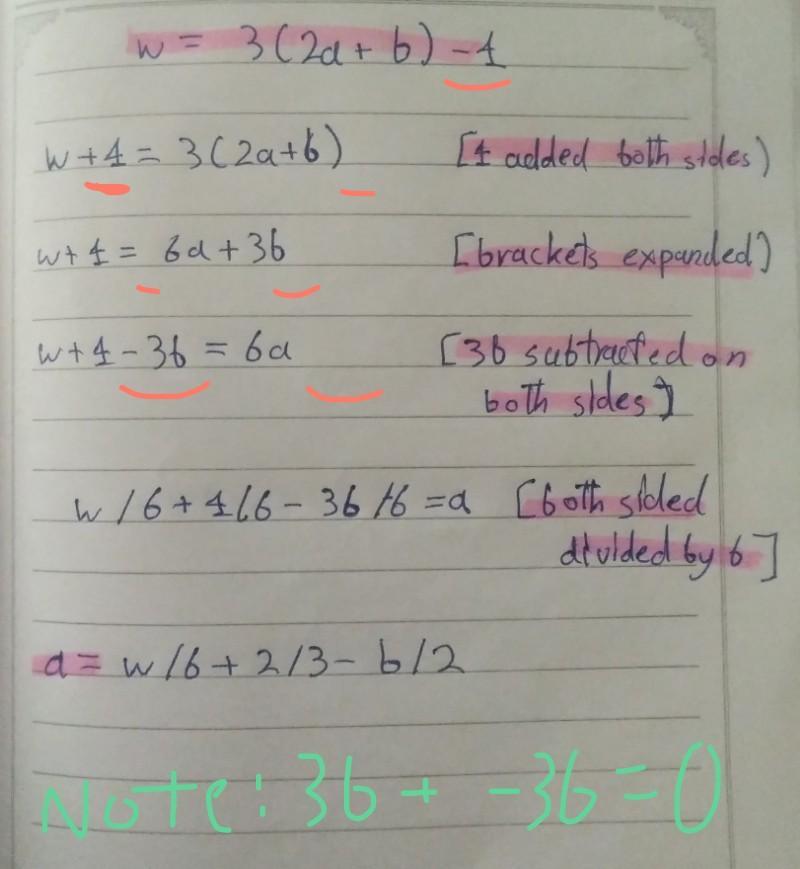 w = 3(2a + b) - 4
w + 4 = 3(2a+b) [4 added both sides)
w+4 = 6a+3b [brackets expanded]
w+4-3b = 6a [3b subtracted on
both sides]
w/6 + 4/6 - 3b/6 = a [both sided
divided by 6]
a = w/6 + 2/3 - b/2
Note: 3b + -3b = 0